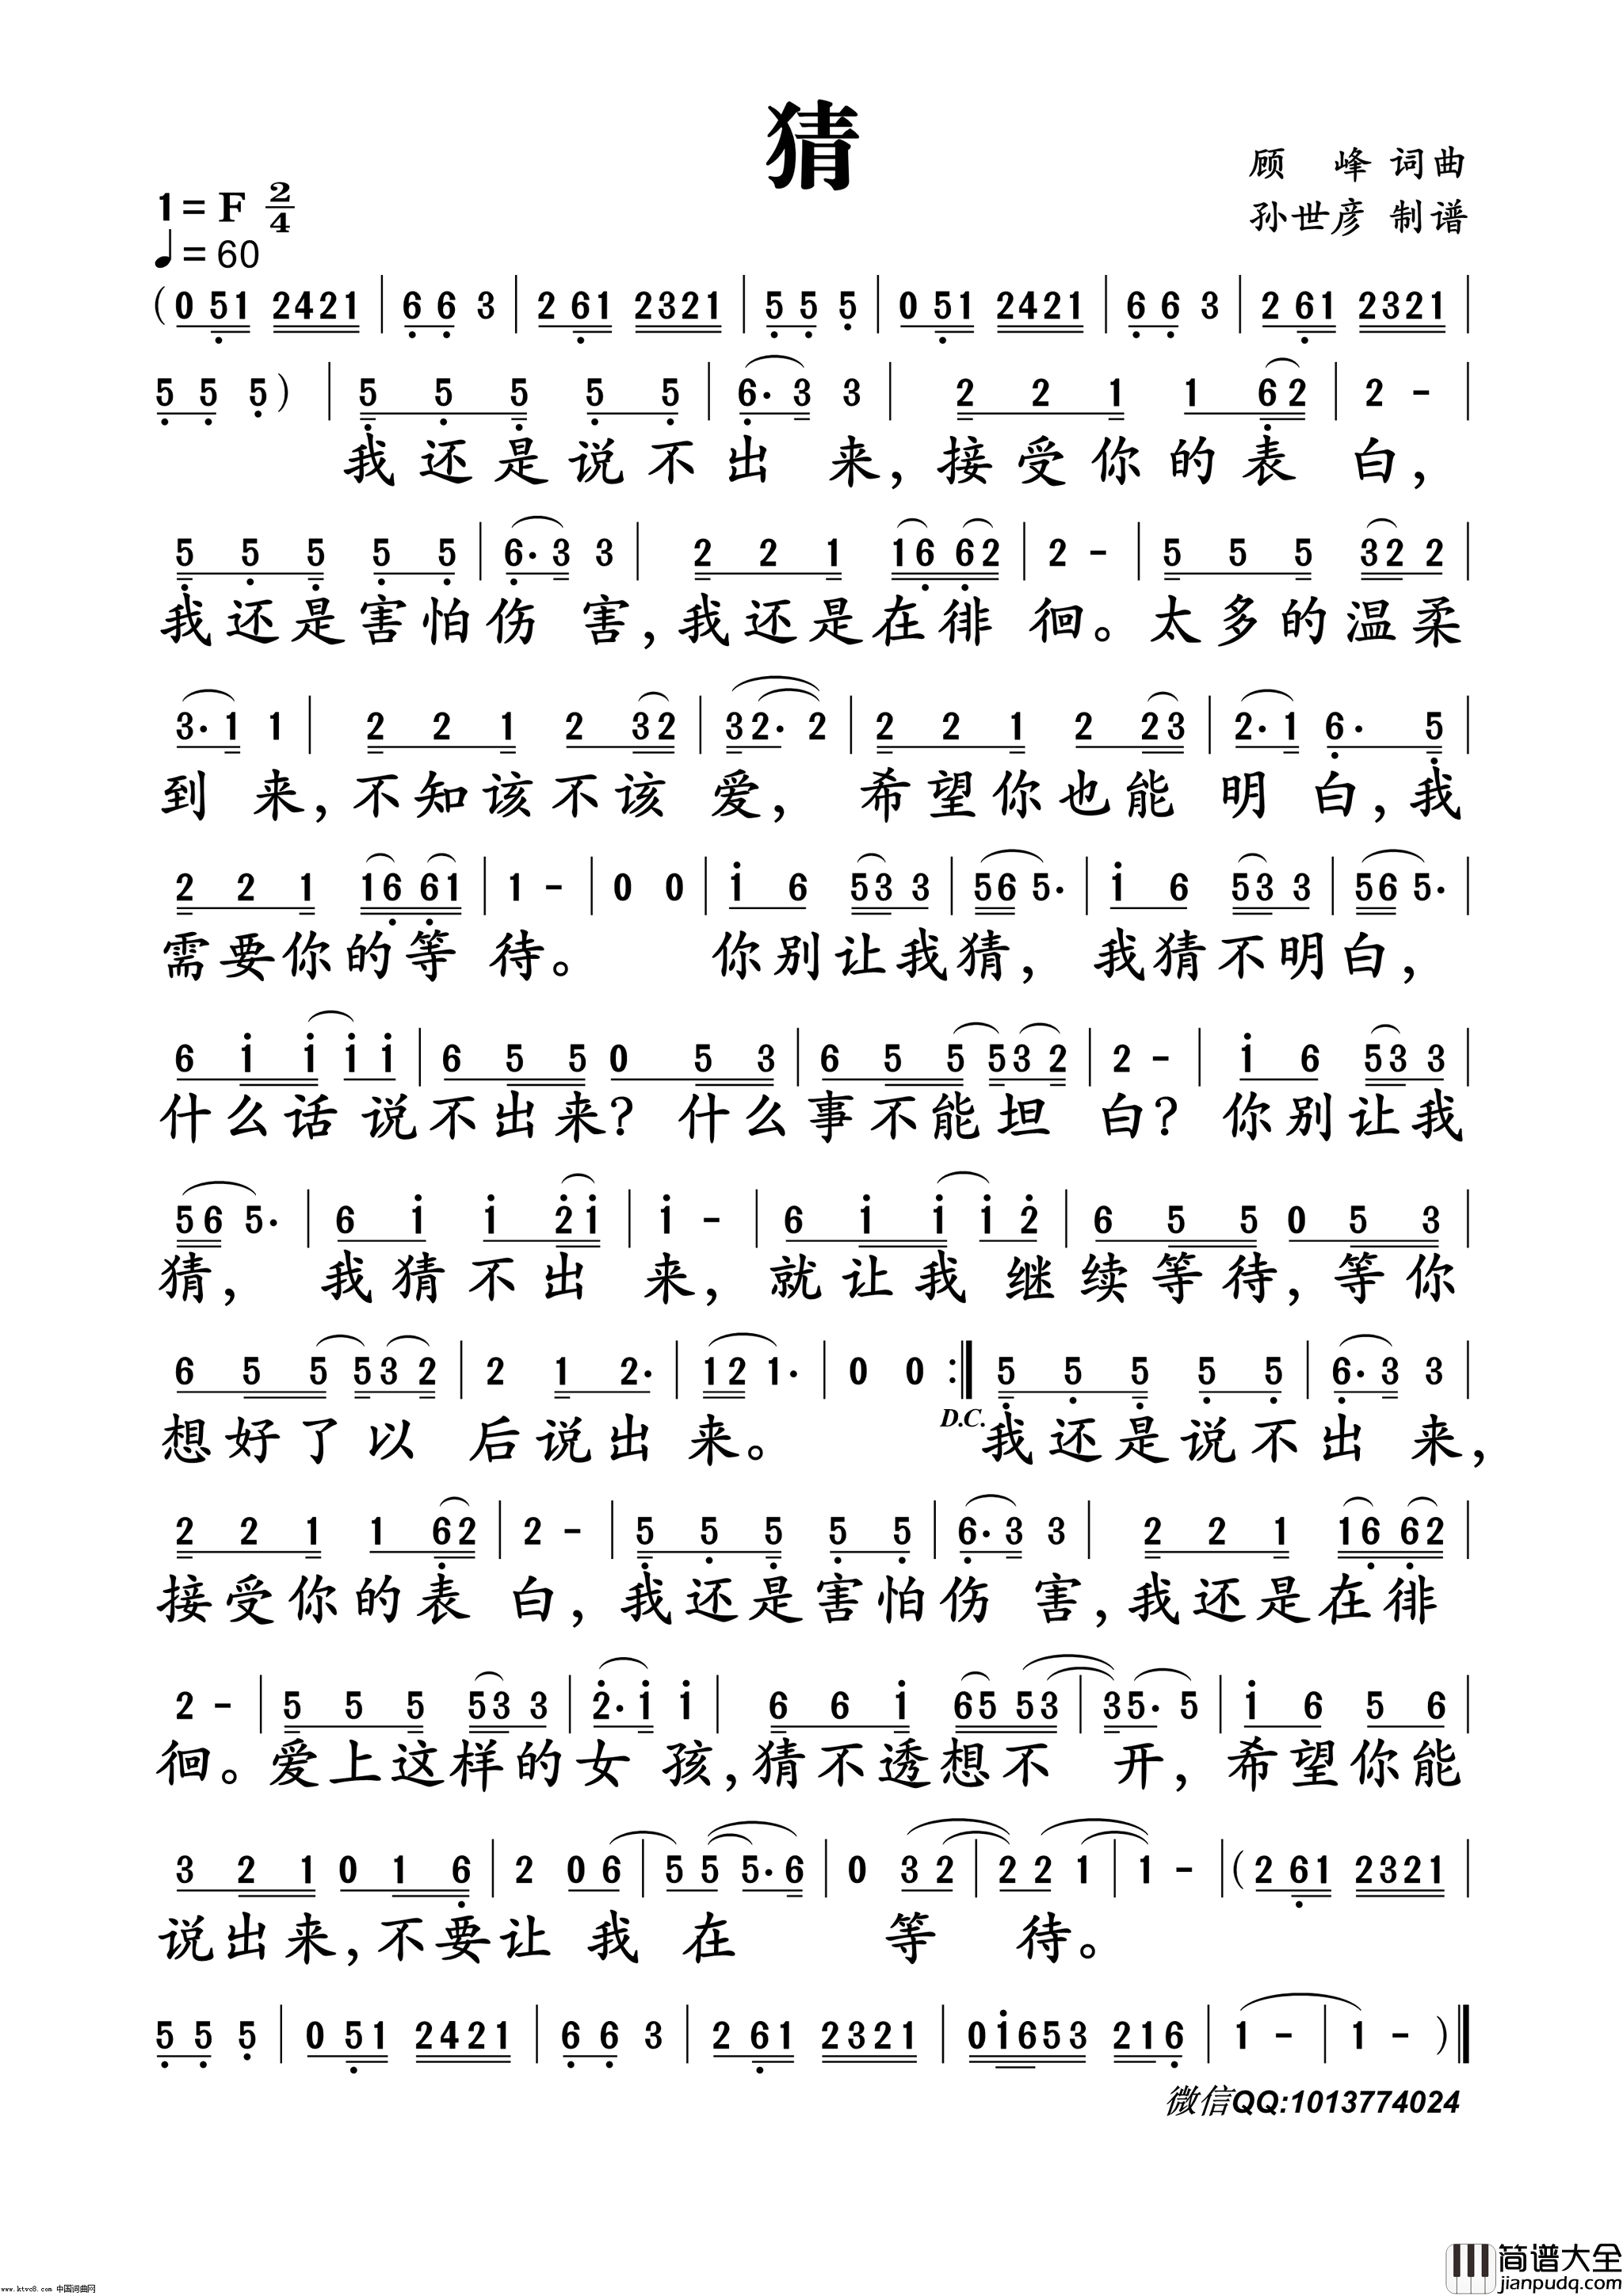 猜
顾 峰 词曲
1= F 2/4
孙世彦 制谱
♩= 60
( 0 51 2421 | 6 6 3 | 2 61 2321 | 5 5 5 | 0 51 2421 | 6 6 3 | 2 61 2321 |
5 5 5 ) | 5 5 5 5 5 | 6· 3 3 | 2 2 1 1 62 | 2 - |
我还是说不出 来, 接受你的表 白,
5 5 5 5 5 | 6· 3 3 | 2 2 1 16 62 | 2 - | 5 5 5 32 2 |
我还是害怕伤 害, 我还是在徘 徊。太多的温柔
3· 1 1 | 2 2 1 2 32 | 32· 2 | 2 2 1 2 23 | 2· 1 6· 5 |
到 来, 不知该不该 爱, 希望你也能 明 白, 我
2 2 1 16 61 | 1 - | 0 0 | i 6 53 3 | 56 5· | i 6 53 3 | 56 5· |
需要你的等 待。 你别让我猜, 我猜不明白,
6 i i i i | 6 5 5 0 5 3 | 6 5 5 53 2 | 2 - | i 6 53 3 |
什么话 说不出来? 什么事不能坦 白? 你别让我
56 5· | 6 i i 2i | i - | 6 i i i 2 | 6 5 5 0 5 3 |
猜, 我猜不出 来, 就让我 继续等待, 等你
6 5 5 53 2 | 2 1 2· | 12 1· | 0 0 :| 5 5 5 5 5 | 6· 3 3 |
D.C.
想好了以 后说出 来。 我还是说不出 来,
2 2 1 1 62 | 2 - | 5 5 5 5 5 | 6· 3 3 | 2 2 1 16 62 |
接受你的表 白, 我还是害怕伤 害, 我还是在徘
2 - | 5 5 5 53 3 | 2· i i | 6 6 i 65 53 | 35· 5 | i 6 5 6 |
徊。爱上这样的女 孩, 猜不透想不 开, 希望你能
3 2 1 0 1 6 | 2 0 6 | 5 5 5· 6 | 0 3 2 | 2 2 1 | 1 - | ( 2 61 2321 |
说出来, 不要让 我 在 等 待。
5 5 5 | 0 51 2421 | 6 6 3 | 2 61 2321 | 0i653 216 | 1 - | 1 - ) ‖
微信QQ:1013774024
简谱大全
jianpudq.com
www.ktvc8.com 中国词曲网